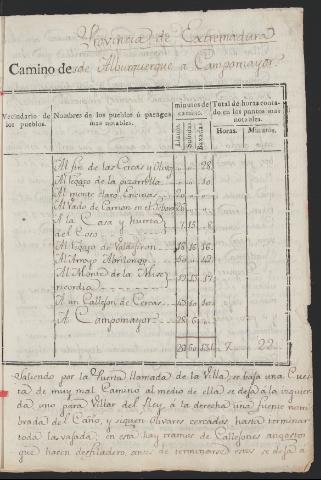 Provincia de Extremadura
Camino desde Alburquerque a Campomayor
Vecindario de los pueblos.
Nombres de los pueblos ú parages mas notables.
minutos de camino.
Llano. Subida. Baxada.
Total de horas contado en los puntos mas notables.
Horas. Minutos.
Al fin de las Cercas y Olivos 28
Al legazo de la pizarrilla 10
Al monte claro Encinas
Al Vado de Carrion en el
A la Casa y huerta del Coso 15 8
Al legazo de Valdefran 18 16 16
Al Arroyo Abrilongo
Al Monte de la Misericordia 17
A un Callejon de Cercas
A Campomayor 28
7 22
Saliendo por la Puerta llamada de la Villa, se baxa una Cuesta
de muy mal Camino al medio de ella se dexa a la izquierda
uno para Villar del Rey, a la derecha una fuente nombrada
del Caño, y siguen Olivares cercados hasta terminar
toda la baxada, en esta hay tramos de Callejones angostos
que hacen desfiladero, antes de terminarse estos se dexa a